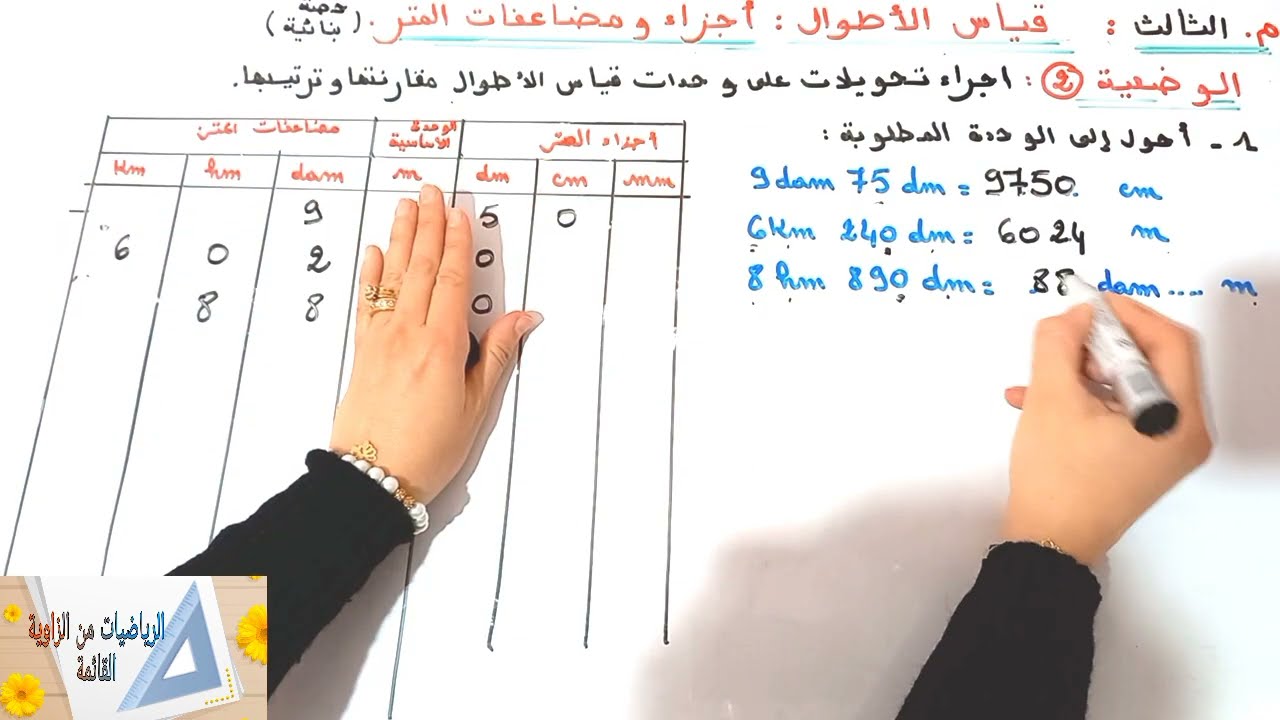 م. الثالث : قياس الأطوال : أجزاء و مضاعفات المتر. ( حصة بنائية )
الوضعية 2 : اجراء تحويلات على وحدات قياس الأطوال مقارنتها وترتيبها.
1 - أحول إلى الوحدة المطلوبة :
9 dam 75 dm = 9750. cm
6 Km 240 dm = 6024 m
8 hm 890 dm = .88 dam .... m
مضاعفات المتر الوحدة الأساسية أجزاء المتر
Km hm dam m dm cm mm
9 5 0
6 0 2 0
8 8 0
الرياضيات من الزاوية
القائمة